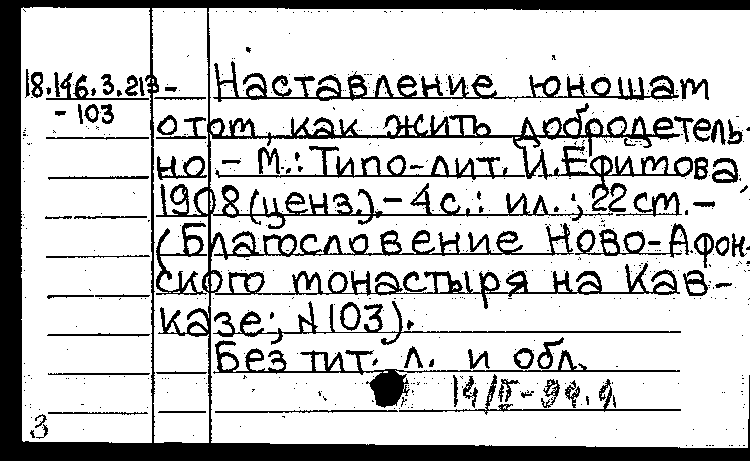 18.146.3.213-
-103
Наставление юношам
о том, как жить добродетель-
но.- М.: Типо-лит. И.Ефимова,
1908 (ценз.).-4с.: ил.; 22см.-
(Благословение Ново-Афон-
ского монастыря на Кав-
казе; N 103).
Без тит. л. и обл.
3